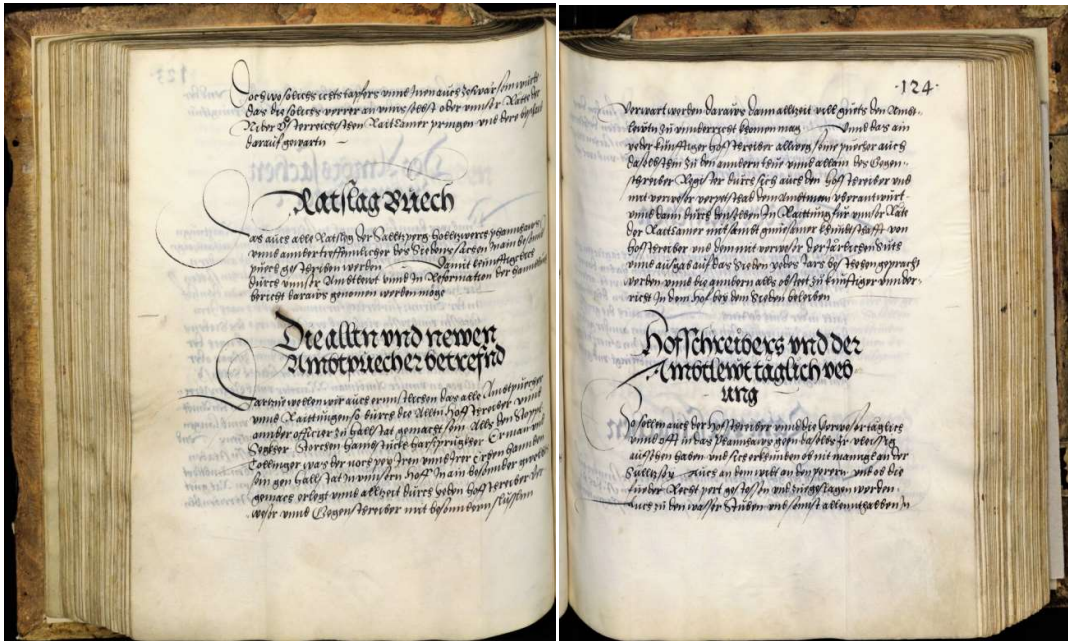 Doch wo solichs ichts tapfers vnnd
das die solichs verrer an vnns selbst oder vnnser Räte der
Niderösterreichischen Raitcamer pringen vnd
darauf gewartn
Ratslag Buech
Das auch alle Ratsleg der Salltzperg Hoellzwerch phannhaws
vnnd annder treffennlicher des Siedens sachen in ain besonnder
puech geschriben werden Damit
durch vnnser Ambtlewt vnnd in Reformation der
bericht daraws genomen werden möge
Die alltn vnd newen
Ambtpuecher betrefnd
wellen wir auch ernnstlichen das alle Ambtpuecher
vnnd Raittungen so durch die Alltn Hofschreiber vnnd
annder officier zu Hallstat gemacht sein Alls den
Segkher Storchen Hannd
was der noch pey Iren vnnd Irer Erben hannden
sein gen Hallstat in vnnsern Hof in ain besonnder
gemach erlegt vnnd allzeit durch yeden Hofschreiber Ver-
weser vnnd Gegenschreiber mit besonndern slüsseln
·124·
Verwart werden daraws dann allzeit vill guets den Ambt-
lewtn zu vnnderricht khomen mag Vnnd das ain
yeder künfftiger Hofschreiber allweg seine puecher auch
daselbsthin zu den anndern thue vnnd allain des Gegen-
schreiber Register durch sich auch den Hofschreiber vnd
mit verweser verpetschad dem Ambtman vberanntwurt
vnnd dann durch denselben In Raittung für vnnser Rät
der Raitcamer mitsambt gemainer khundtschafft von
Hofschreiber vnd dem mit verweser der Järlichen Suts
vnnd ausgab auf das Sieden yedes Jars beschehen gepracht
werden vnnd die anndern alls obstet zu künfftiger vnnder-
richt In dem Hof bey dem Sieden beleiben
Hofschreibers vnd der
Ambtlewt täglich veb
ung
So sollen auch der Hofschreiber vnnd die Verweser täglich
vnnd offt in das Phannhaws geen daselbs Ir vleissig
aufsehen haben vnd sich erkhunden ob nit manngl an der
Sulltz sey Auch an dem
Fueder Recht gestossen vnd zuegeslagen werden
Auch zu den wasser Stuben vnd sonnst allennthalben In